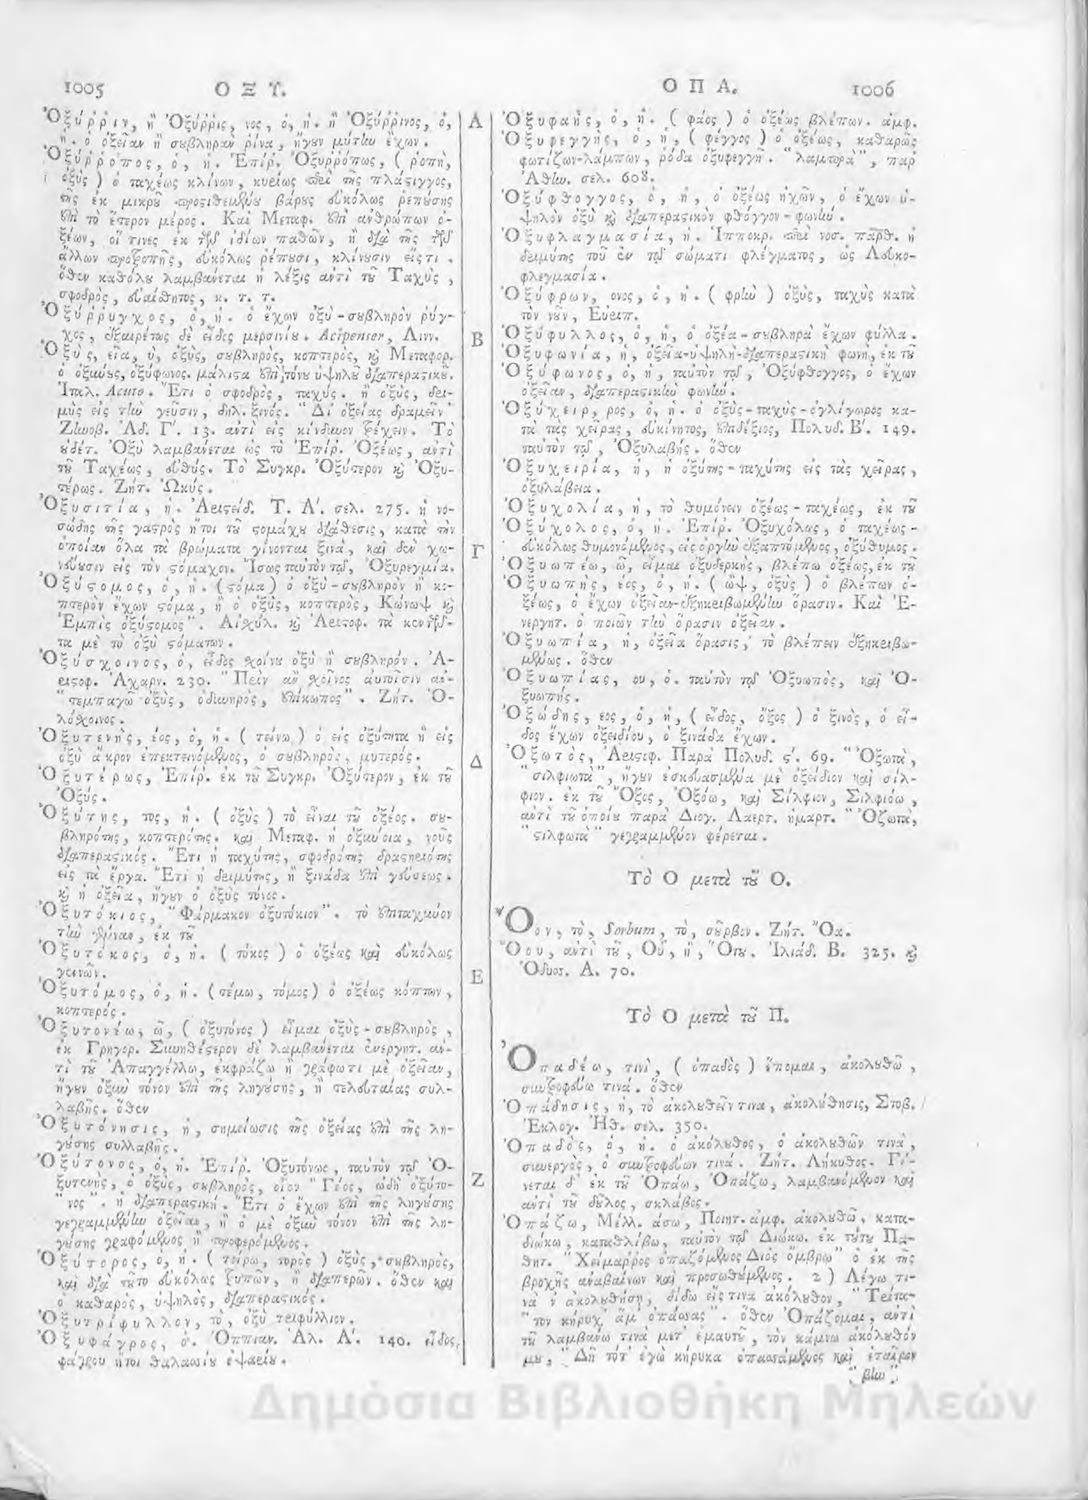 1005 Ο Ξ Υ.
Ὀξύῤῥιν, ἢ Ὀξύῤῥις, νος, ὁ, ἡ. ἢ Ὀξύῤῥινος, ὁ,
ἡ. ὁ ὀξεῖαν ἢ σουβληρὰν ῥῖνα, ἤγουν μύτην ἔχων.
Ὀξύῤῥοπος, ὁ, ἡ. Ἐπίῤ. Ὀξυῤῥόπως, ( ῥοπὴ,
ὀξὺς ) ὁ ταχέως κλίνων, κυρίως περὶ τῆς πλάστιγγος,
τῆς ἐκ μικροῦ προστιθεμένου βάρους εὐκόλως ῥεπούσης
ἐπὶ τὸ ἕτερον μέρος. Καὶ Μεταφ. ἐπὶ ἀνθρώπων ὀ-
ξέων, οἵ τινες ἐκ τῶν ἰδίων παθῶν, ἢ διὰ τῆς τῶν
ἄλλων προτροπῆς, εὐκόλως ῥέπουσι, κλίνουσιν εἴς τι.
ὅθεν καθόλου λαμβάνεται ἡ λέξις ἀντὶ τοῦ Ταχὺς,
σφοδρὸς, εὐαίσθητος, κ. τ. τ.
Ὀξύῤῥυγχος, ὁ, ἡ. ὁ ἔχων ὀξὺ-σουβληρὸν ῥύγ-
χος, ἐξαιρέτως δὲ εἶδος μερσινίου. Acipenser, Λινν.
Ὀξὺς, εῖα, ὺ, ὀξὺς, σουβληρὸς, κοπτερὸς, καὶ Μεταφορ.
ὁ ὀξύνους, ὀξύφωνος. μάλιστα ἐπὶ τόνου ὑψηλοῦ διαπεραστικοῦ.
Ἰταλ. Acuto. Ἔτι ὁ σφοδρὸς, ταχὺς. ἢ ὀξὺς, δρι-
μὺς εἰς τὴν γεῦσιν, δηλ. ξινὸς. " Δι' ὀξείας δραμεῖν"
Ζηνοβ. Ἀδ. Γ'. 13. ἀντὶ εἰς κίνδυνον τρέχειν. Τὸ
οὐδέτ. Ὀξὺ λαμβάνεται ὡς τὸ Ἐπίῤ. Ὀξέως, ἀντὶ
τοῦ Ταχέως, εὐθύς. Τὸ Συγκρ. Ὀξύτερον καὶ Ὀξυ-
τέρως. Ζήτ. Ὠκύς.
Ὀξυσιτία, ἡ. Ἀριστείδ. Τ. Α'. σελ. 275. ἡ νο-
σώδης τῆς γαστρὸς ἤτοι τοῦ στομάχου διάθεσις, κατὰ τὴν
ὁποίαν ὅλα τὰ βρώματα γίνονται ξινὰ, καὶ δὲν χω-
νεύουσιν εἰς τὸν στόμαχον. Ἴσως ταὐτὸν τῷ, Ὀξυρεγμία.
Ὀξύστομος, ὁ, ἡ. ( στόμα ) ὁ ὀξὺ-σουβληρὸν ἢ κο-
πτερὸν ἔχων στόμα, ἢ ὁ ὀξὺς, κοπτερὸς, Κώνωψ καὶ
Ἐμπὶς ὀξύστομος". Αἰσχύλ. καὶ Ἀριστοφ. τὰ κεντῶν-
τα μὲ τὸ ὀξὺ στόματων.
Ὀξύσχοινος, ὁ, εἶδος σχοίνου ὀξὺ ἢ σουβληρόν. Ἀ-
ριστοφ. Ἀχαρν. 230. " Πρὶν ἂν σχοῖνος αὐτοῖσιν ἀν-
" τεμπαγῶ ὀξὺς, ὀδυνηρὸς, ἐπίκωπος". Ζήτ. Ὁ-
λόσχοινος.
Ὀξυτενὴς, έος, ὁ, ἡ. ( τείνω ) ὁ εἰς ὀξύτητα ἢ εἰς
ὀξὺ ἄκρον ἐπεκτεινόμενος, ὁ σουβληρὸς, μυτερός.
Ὀξυτέρως, Ἐπίῤ. ἐκ τοῦ Συγκρ. Ὀξύτερον, ἐκ τοῦ
Ὀξύς.
Ὀξύτης, τος, ἡ. ( ὀξὺς ) τὸ εἶναι τοῦ ὀξέος. σου-
βληρότης, κοπτερότης. καὶ Μεταφ. ἡ ὀξύνοια, νοῦς
διαπεραστικός. Ἔτι ἡ ταχύτης, σφοδρότης δραστηριότης
εἰς τὰ ἔργα. Ἔτι ἡ δριμύτης, ἢ ξινάδα ἐπὶ γεύσεως.
καὶ ἡ ὀξεῖα, ἤγουν ὁ ὀξὺς τόνος.
Ὀξυτόκιος, " Φάρμακον ὀξυτόκιον". τὸ ἐπιταχῦνον
τὴν γένναν, ἐκ τοῦ
Ὀξυτόκος, ὁ, ἡ. ( τόκος ) ὁ ὀξέως καὶ εὐκόλως
γεννῶν.
Ὀξυτόμος, ὁ, ἡ. ( τέμω, τόμος ) ὁ ὀξέως κόπτων,
κοπτερός.
Ὀξυτονέω, ῶ, ( ὀξυτόνος ) εἶμαι ὀξὺς-σουβληρὸς,
ἐκ Γρηγορ. Συνηθέστερον δὲ λαμβάνεται ἐνεργητ. ἀν-
τὶ τοῦ Ἀπαγγέλλω, ἐκφράζω ἢ γράφω τι μὲ ὀξεῖαν,
ἤγουν ὀξὺν τόνον ἐπὶ τῆς ληγούσης, ἢ τελευταίας συλ-
λαβῆς. ὅθεν
Ὀξυτόνησις, ἡ, σημείωσις τῆς ὀξείας ἐπὶ τῆς λη-
γούσης συλλαβῆς.
Ὀξύτονος, ὁ, ἡ. Ἐπίῤ. Ὀξυτόνως, ταὐτὸν τῷ Ὀ-
ξυτενὴς, ὁ ὀξὺς, σουβληρὸς, οἷον " Γόος, ᾠδὴ ὀξύτο-
" νος". ἡ διαπεραστική. Ἔτι ὁ ἔχων ἐπὶ τῆς ληγούσης
γεγραμμένην ὀξεῖαν, ἢ ὁ μὲ ὀξὺν τόνον ἐπὶ τῆς λη-
γούσης γραφόμενος ἢ προφερόμενος.
Ὀξύτορος, ὁ, ἡ. ( τείρω, τορὸς ) ὀξὺς, σουβληρὸς,
καὶ διὰ τοῦτο εὐκόλως τρυπῶν, ἢ διαπερῶν. ὅθεν καὶ
ὁ καθαρὸς, ὑψηλὸς, διαπεραστικός.
Ὀξυτρίφυλλον, τὸ, ὀξὺ τριφύλλιον.
Ὀξυφάγρος, ὁ. Ὀππιαν. Ἁλ. Α'. 140. εἶδος
φάγρου ἤτοι θαλασσίου ὀψαρίου.
Α
Β
Γ
Δ
Ε
Ζ
Ο Π Α. 1006
Ὀξυφαὴς, ὁ, ἡ. ( φάος ) ὁ ὀξέως βλέπων. ἀμφ.
Ὀξυφεγγὴς, ὁ, ἡ, ( φέγγος ) ὁ ὀξέως, καθαρῶς
φωτίζων-λάμπων, ῥόδα ὀξυφεγγῆ. " λαμπρὰ", παρ'
Ἀθην. σελ. 608.
Ὀξύφθογγος, ὁ, ἡ, ὁ ὀξέως ἠχῶν, ὁ ἔχων ὑ-
ψηλὸν ὀξὺ καὶ διαπεραστικὸν φθόγγον-φωνήν.
Ὀξυφλαγμασία, ἡ. Ἱπποκρ. περὶ νοσ. παρθ. ἡ
δριμύτης τοῦ ἐν τῷ σώματι φλέγματος, ὡς Λευκο-
φλεγμασία.
Ὀξύφρων, ονος, ὁ, ἡ. ( φρὴν ) ὀξὺς, ταχὺς κατὰ
τὸν νοῦν, Εὐριπ.
Ὀξύφυλλος, ὁ, ἡ, ὁ ὀξέα-σουβληρὰ ἔχων φύλλα.
Ὀξυφωνία, ἡ, ὀξεῖα-ὑψηλὴ-διαπεραστικὴ φωνὴ, ἐκ τοῦ
Ὀξύφωνος, ὁ, ἡ, ταὐτὸν τῷ, Ὀξύφθογγος, ὁ ἔχων
ὀξεῖαν, διαπεραστικὴν φωνήν.
Ὀξύχειρ, ρος, ὁ, ἡ. ὁ ὀξὺς-ταχὺς-ὀγλίγωρος κα-
τὰ τὰς χεῖρας, εὐκίνητος, ἐπιδέξιος, Πολυδ. Β'. 149.
ταὐτὸν τῷ, Ὀξυλαβής. ὅθεν
Ὀξυχειρία, ἡ, ἡ ὀξύτης-ταχύτης εἰς τὰς χεῖρας,
ὀξυλάβεια.
Ὀξυχολία, ἡ, τὸ θυμόνειν ὀξέως-ταχέως, ἐκ τοῦ
Ὀξύχολος, ὁ, ἡ. Ἐπίῤ. Ὀξυχόλως, ὁ ταχέως-
εὐκόλως θυμονόμενος, εἰς ὀργὴν ἐξαπτόμενος, ὀξύθυμος.
Ὀξυωπέω, ῶ, εἶμαι ὀξυδερκὴς, βλέπω ὀξέως, ἐκ τοῦ
Ὀξυωπὴς, έος, ὁ, ἡ. ( ὢψ, ὀξὺς ) ὁ βλέπων ὀ-
ξέως, ὁ ἔχων ὀξεῖαν-ἐξηκριβωμένην ὅρασιν. Καὶ Ἐ-
νεργητ. ὁ ποιῶν τὴν ὅρασιν ὀξεῖαν.
Ὀξυωπία, ἡ, ὀξεῖα ὅρασις, τὸ βλέπειν ἐξηκριβω-
μένως. ὅθεν
Ὀξυωπίας, ου, ὁ. ταὐτὸν τῷ Ὀξυωπὸς, καὶ Ὀ-
ξυωπής.
Ὀξώδης, εος, ὁ, ἡ, ( εἶδος, ὄξος ) ὁ ξινὸς, ὁ εἶ-
δος ἔχων ὀξειδίου, ὁ ξινάδα ἔχων.
Ὀξωτὸς, Ἀριστοφ. Παρὰ Πολυδ. ς'. 69. " Ὀξωτὰ,
" σιλφιωτὰ", ἤγουν ἐσκευασμένα μὲ ὀξείδιον καὶ σίλ-
φιον. ἐκ τοῦ Ὄξος, Ὀξόω, καὶ Σίλφιον, Σιλφιόω,
ἀντὶ τοῦ ὁποίου παρὰ Διογ. Λαερτ. ἡμαρτ. " Ὀζωτὰ,
" στλφωτὰ" γεγραμμένον φέρεται.
Τὸ Ο μετὰ τοῦ Ο.
Ὄον, τὸ, Sorbum, τὸ, σοῦρβον. Ζήτ. Ὄα.
Ὅου, ἀντὶ τοῦ, Οὗ, ἢ, Ὅτου. Ἰλιάδ. Β. 325. καὶ
Ὀδυσσ. Α. 70.
Τὸ Ο μετὰ τοῦ Π.
Ὀπαδέω, τινὶ, ( ὀπαδὸς ) ἕπομαι, ἀκολουθῶ,
συντροφεύω τινά. ὅθεν
Ὀπάδησις, ἡ, τὸ ἀκολουθεῖν τινα, ἀκολούθησις, Στοβ.
Ἐκλογ. Ἠθ. σελ. 350.
Ὀπαδὸς, ὁ, ἡ. ὁ ἀκόλουθος, ὁ ἀκολουθῶν τινὰ,
συνεργὸς, ὁ συντροφεύων τινά. Ζήτ. Λήκυθος. Γί-
νεται δ' ἐκ τοῦ Ὀπάω, Ὀπάζω, λαμβανόμενον καὶ
ἀντὶ τοῦ δοῦλος, σκλάβος.
Ὀπάζω, Μέλλ. άσω, Ποιητ. ἀμφ. ἀκολουθῶ, κατα-
διώκω, καταθλίβω, ταὐτὸν τῷ Διώκω. ἐκ τούτου Πα-
θητ. " Χείμαῤῥος ὀπαζόμενος Διὸς ὄμβρῳ" ὁ ἐκ τῆς
βροχῆς ἀναβαίνων καὶ προσωθούμενος. 2) Λέγω τι-
νὰ ν' ἀκολουθήσῃ, δίδω εἴς τινα ἀκόλουθον, " Τρίτα-
" τον κήρυχ' ἅμ' ὀπάσσας". ὅθεν Ὀπάζομαι, ἀντὶ
τοῦ λαμβάνω τινὰ μετ' ἐμαυτοῦ, τὸν κάμνω ἀκόλουθόν
μου, " Δὴ τότ' ἐγὼ κήρυκα ὀπασσάμενος καὶ ἑταῖρον
" βῆν"
Δημόσια Βιβλιοθήκη Μηλεών